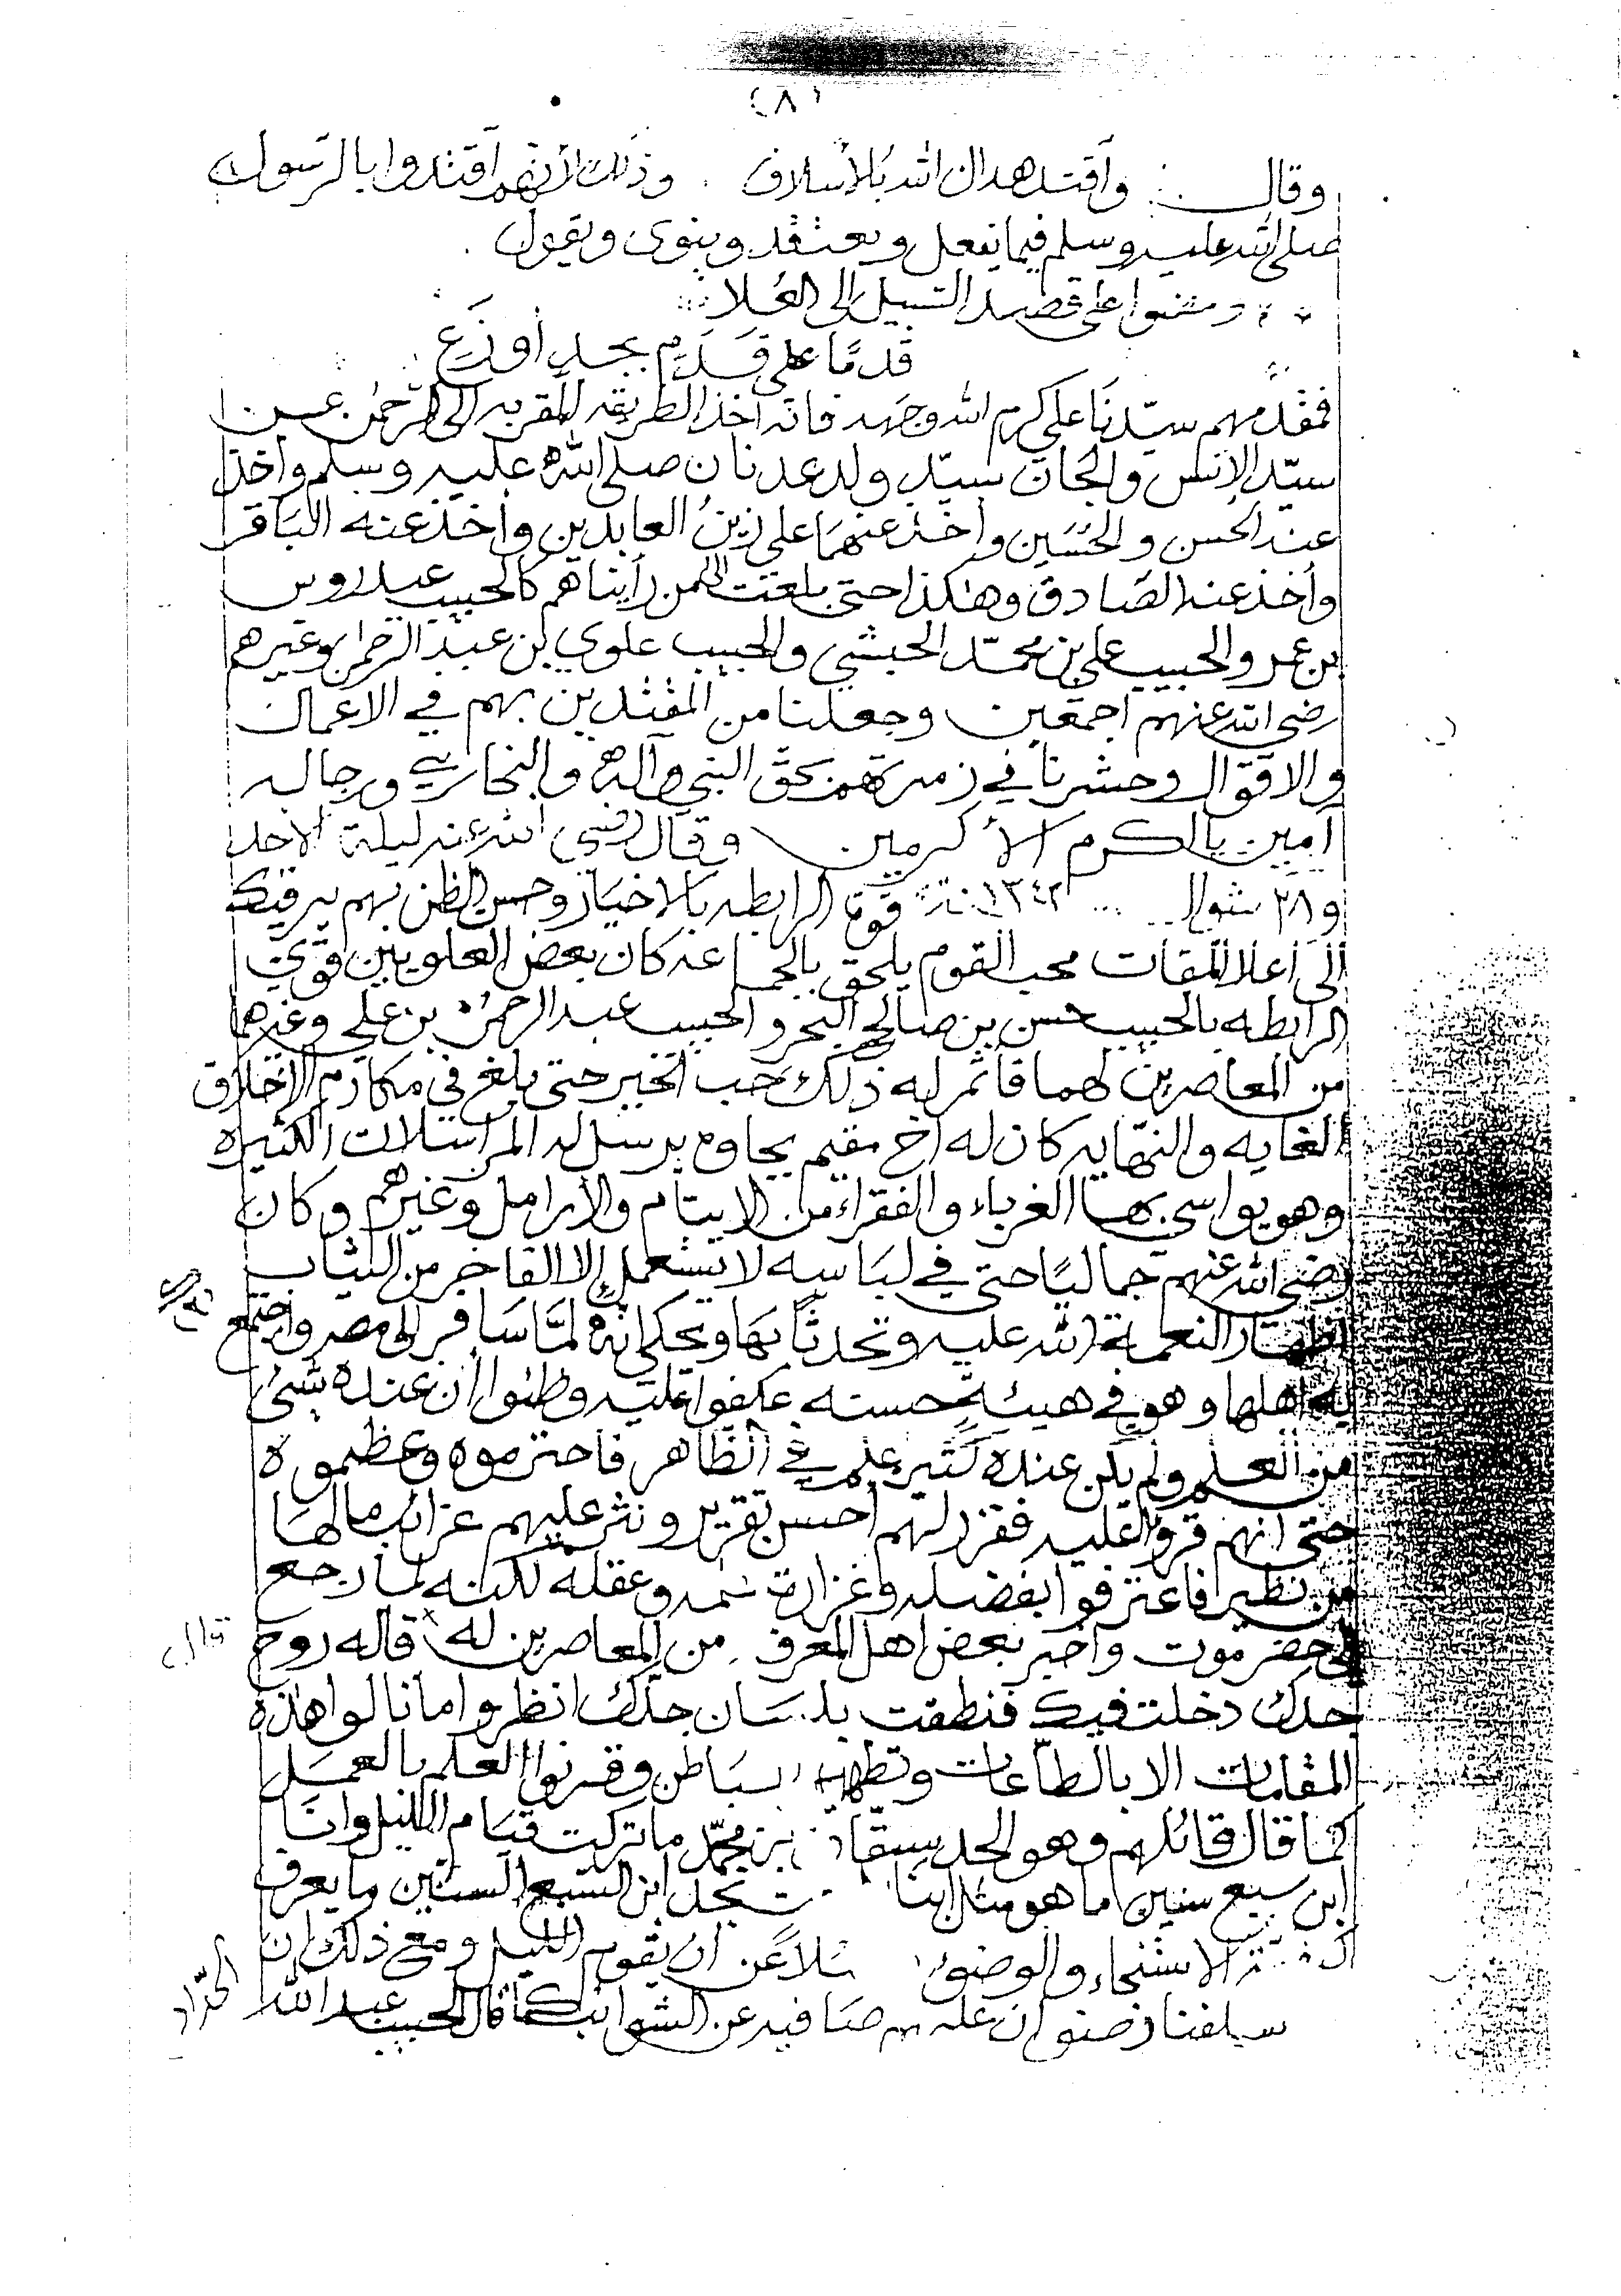 (٨)
وقال : وأقتد هداك الله بالأسلاف . وذلك لأنهم أقتدوا بالرسول
صلى الله عليه وسلم فيما يفعل ويعتقد وينوى ويقول .
ومشوا على قصد السبيل الى العُلا
قدمًا على قَدَمٍ بجد أوزَعِ
فمقدمهم سيّدنَا علي كرم الله وجهه فانه اخذ الطريقه المقربه الى الرحمن عن
سيّد الإنس والجان سيّد ولد عدنان صلى الله عليه وسلم وأخذ
عنه الحسن والحُسَين وأخذ عنهمَا علي زينُ العابدين وأخذ عنه البَاقر
وأخذ عنه الصَادق وهٰكذا حتى بلغت الى من رأيناهم كالحبيب عيدروس
بن عمر والحبيب علي بن محمّد الحبشي والحبيب علوي بن عبد الرحمن وغيرهم
رضي الله عنهم اجمعين وجعلنا من المقتدين بهم في الاعمال
والاقوال وحشرنا في زمرتهم بحق النبي وآله والبخاري ورجاله
آمين يا اكرم الأكرمين وقال رضي الله عنه ليلة الاحد
و٢٨ شوال ١٣٤٢ قوة الرابطه بالاخيار وحسن الظن بهم يرقيك
الى أعلا المقات محب القوم يلحق بالجماعه كان بعض العلويين قوي
الرابطه بالحبيب حسن بن صالح البحر والحبيب عبد الرحمٰن بن علي وغيرهما
من المعاصرين لهما فأثمر له ذلك حب الخير حتى بلغ في مكارم الاخلاق
الغايه والنهايه كان له أخ مقيم بجاوه يرسل له المراسلات الكثيره
وهو يواسي بها الغرباء والفقراء من الايتام والأرامل وغيرهم وكان
رضي الله عنهم جماليًا حتى في لبَاسه لا يستعمل إلا الفاخر من الثياب
اظهارًا لنعمة الله عليه وتحدثًا بهَا ويحكى انه لمَّا سَافر الى مصر واجتمع
به أهلها وهو في هيئةٍ حسنه عكفوا عليه وظنوا أن عنده شئ
من العلم ولم يكن عنده كثير علم في الظاهر فاحترموه وعظموه
حتى انهم قروا عليه فقرر لهم أحسن تقرير ونثر عليهم غرائب مالهَا
من نظير فاعترفوا بفضله وغزارة علمه وعقله لكنه لما رجع
الى حضرموت وأخبر بعض اهل المعرفه من المعاصرين له قال له روح
جدك دخلت فيك فنطقت بلسَان جدّك انظروا ما نالوا هٰذه
المقامات الا بالطاعات وتطهير البَاطن وقرنوا العلم بالعمَل
كما قال قائلهم وهو الجد سقاف بن محمّد ما تركت قيَام الليل وانا
ابن سبع سنين اما هو مثل ابنا تجد ابن السبع السنين ما يعرف
الاستنجاء والوضوء فضلاً عن ان يقوم الليل ومع ذلك ان
سلفنا رضوان الله عليهم صَافيه عن الشوائب كمَا قال الحبيب عبد الله الحدّاد
قال